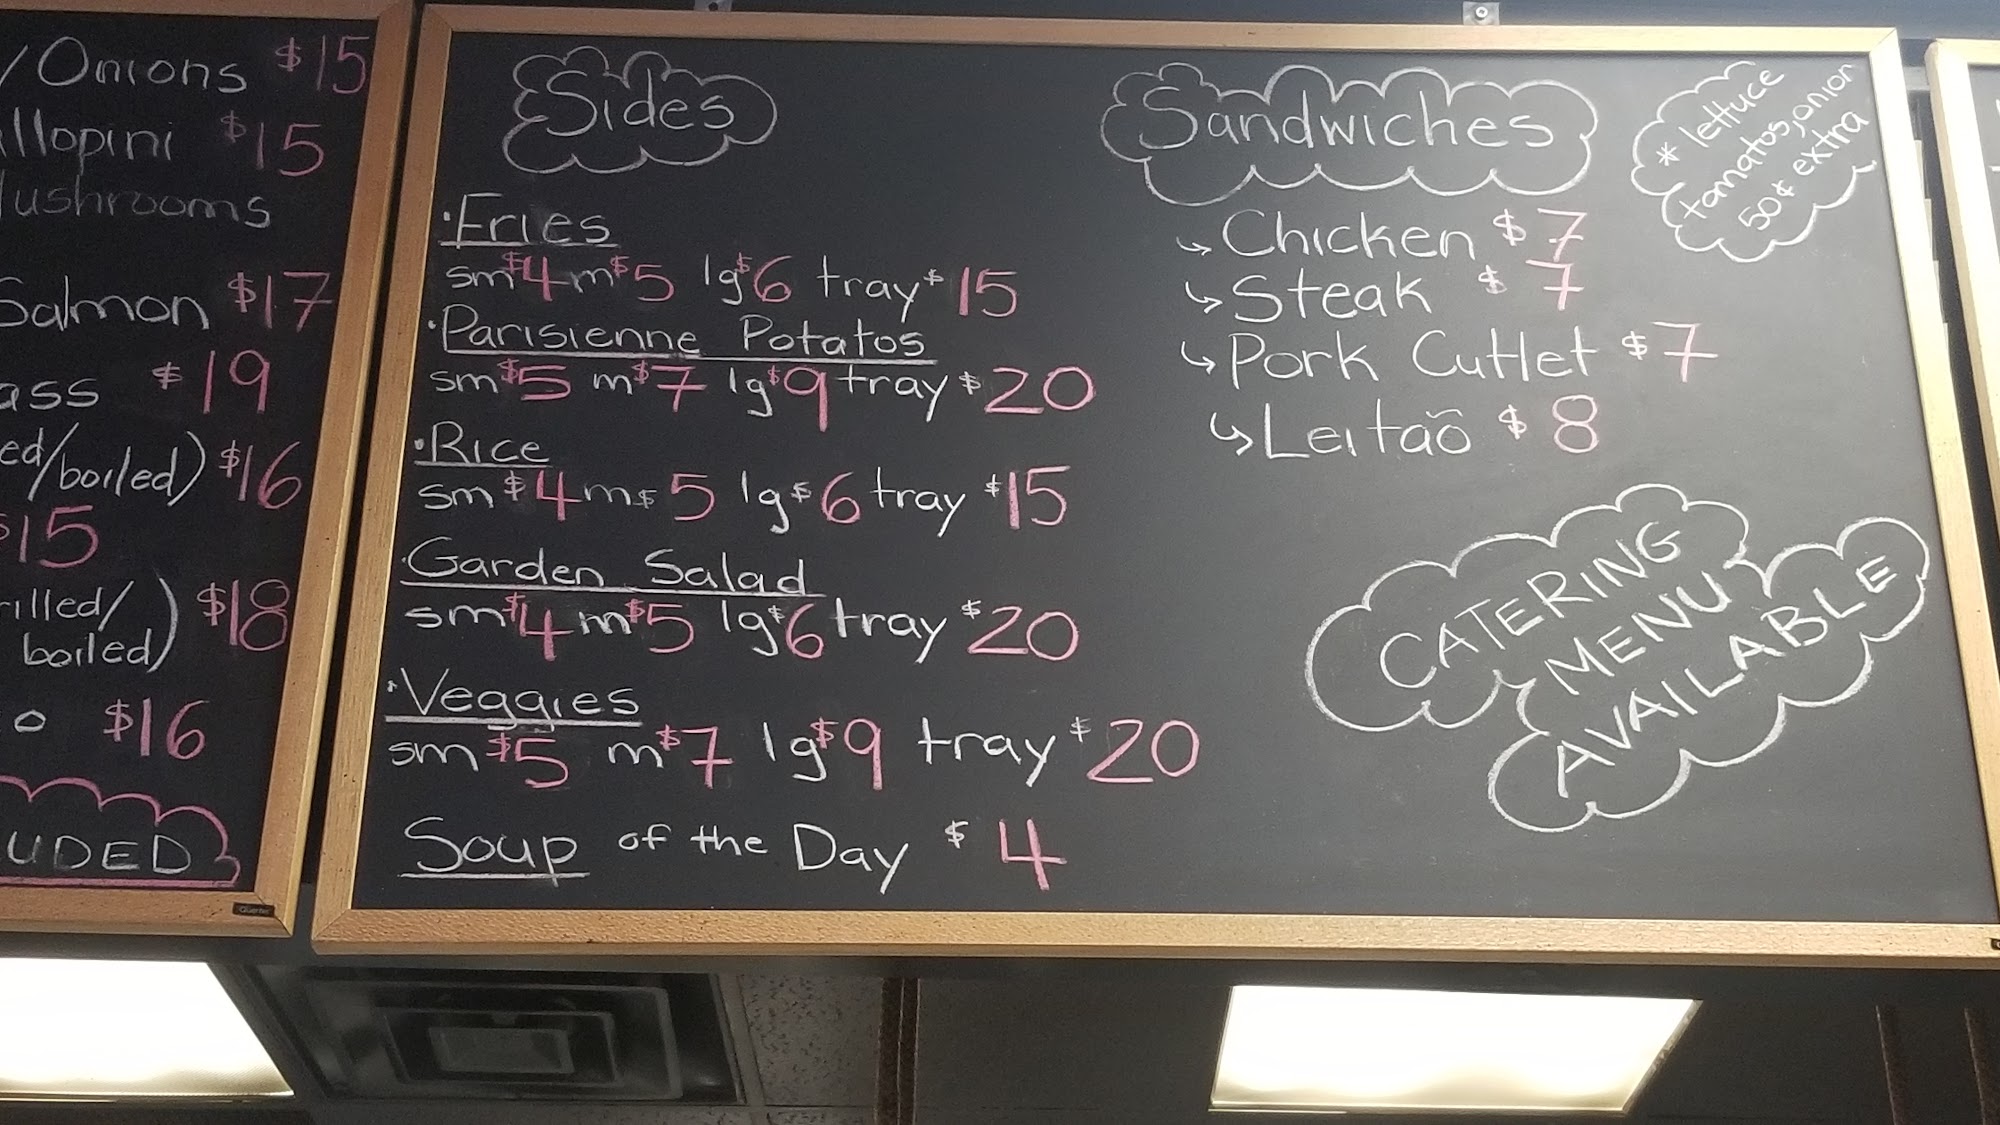 /Onions $15
$15
Mushrooms
Salmon $17
$19
/boiled) $16
$15
boiled) $18
o $16
Sides
·Fries
sm $4 m $5 lg $6 tray $15
·Parisienne Potatos
sm $5 m $7 lg $9 tray $20
·Rice
sm $4 m $5 lg $6 tray $15
·Garden Salad
sm $4 m $5 lg $6 tray $20
·Veggies
sm $5 m $7 lg $9 tray $20
Soup of the Day $4
Sandwiches
↳ Chicken $7
↳ Steak $7
↳ Pork Cutlet $7
↳ Leitaõ $8
* lettuce
tomatos, onion
50¢ extra
CATERING
MENU
AVAILABLE